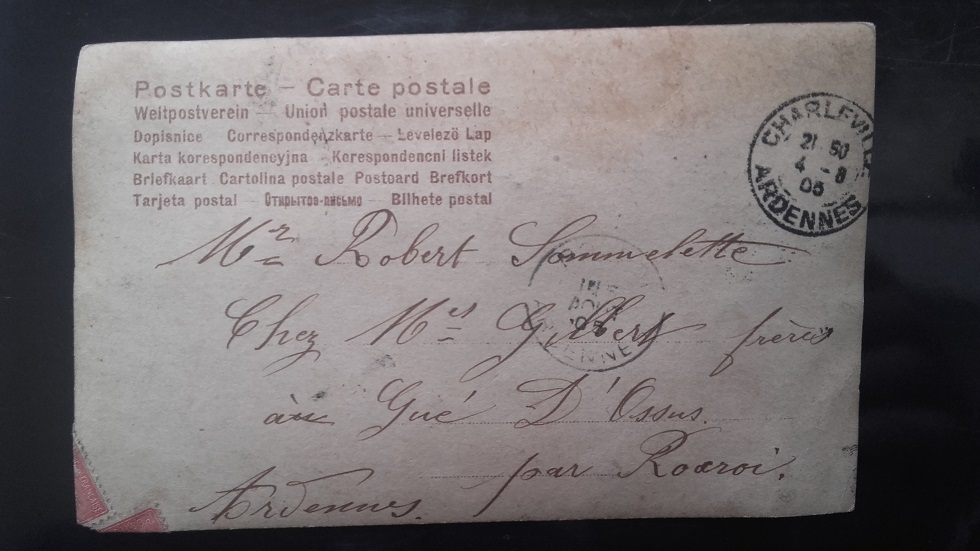 Postkarte – Carte postale
Weltpostverein — Union postale universelle
Dopisnice Correspondenzkarte – Levelező Lap
Karta korespondencyjna – Korespondencni listek
Briefkaart Cartolina postale Postcard Brefkort
Tarjeta postal – Открытое письмо – Bilhete postal
CHARLEVILLE
21 50
4 - 8
05
ARDENNES
Mr Robert Sommelette
Chez Mrs Gilbert frères
au Gué D'Ossus.
par Rocroi.
Ardennes.